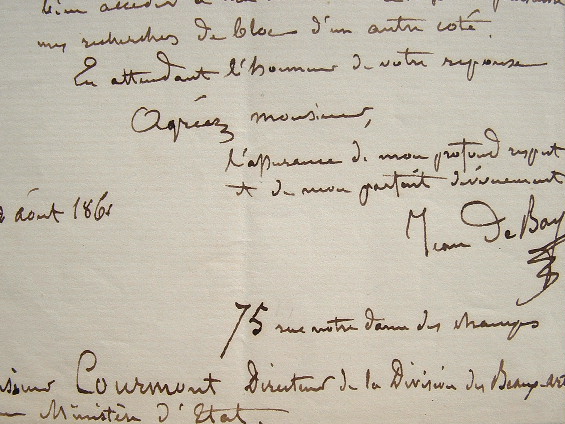 bien accéder à
mes recherches de bloc d'un autre coté.
En attendant l'honneur de votre reponse
Agréez monsieur,
l'assurance de mon profond respect
et de mon parfait dévouement
août 1861
Jean De Bay
75 rue notre dame des champs
Courmont Directeur de la Division des Beaux-art
Ministère d'Etat.